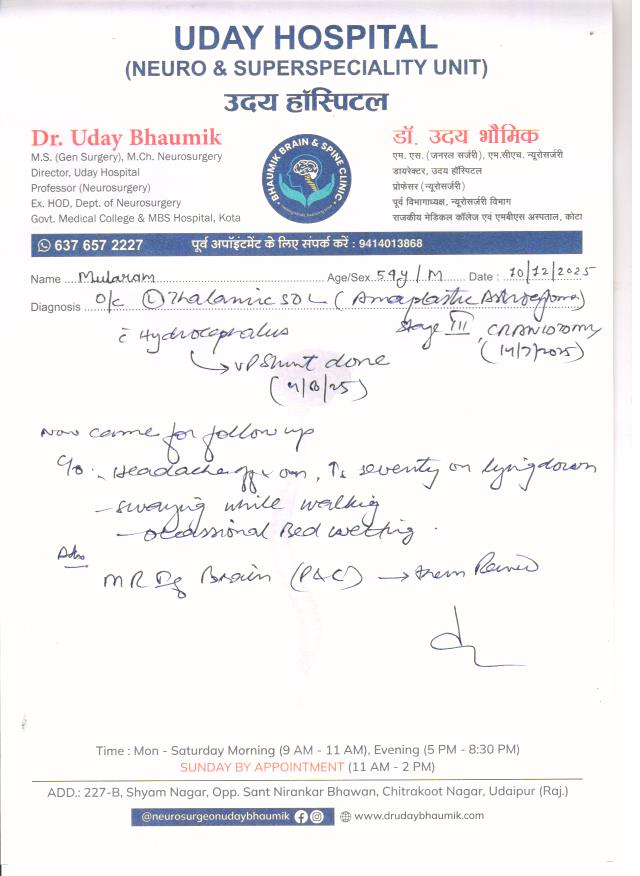 UDAY HOSPITAL
(NEURO & SUPERSPECIALITY UNIT)
उदय हॉस्पिटल
Dr. Uday Bhaumik
M.S. (Gen Surgery), M.Ch. Neurosurgery
Director, Uday Hospital
Professor (Neurosurgery)
Ex. HOD, Dept. of Neurosurgery
Govt. Medical College & MBS Hospital, Kota
BHAUMIK BRAIN & SPINE CLINIC
डॉ. उदय भौमिक
एम. एस. (जनरल सर्जरी), एम.सीएच. न्यूरोसर्जरी
डायरेक्टर, उदय हॉस्पिटल
प्रोफेसर (न्यूरोसर्जरी)
पूर्व विभागाध्यक्ष, न्यूरोसर्जरी विभाग
राजकीय मेडिकल कॉलेज एवं एमबीएस अस्पताल, कोटा
637 657 2227 पूर्व अपॉइंटमेंट के लिए संपर्क करें : 9414013868
Name Mularam Age/Sex 59y/M Date : 10/12/2025
Diagnosis o/c (L) Thalamic SOL (Anaplastic Astrocytoma)
Stage III, CRANIOTOMY
c̄ Hydrocephalus (14/7/2025)
↳ VP Shunt done
(4/8/25)
Now came for follow up
c/o - Headache off & on, ↑s severity on lying down
- swaying while walking
- occassional Bed wetting.
Adv
MRI of Brain (P&C) → then Review
Time : Mon - Saturday Morning (9 AM - 11 AM), Evening (5 PM - 8:30 PM)
SUNDAY BY APPOINTMENT (11 AM - 2 PM)
ADD.: 227-B, Shyam Nagar, Opp. Sant Nirankar Bhawan, Chitrakoot Nagar, Udaipur (Raj.)
@neurosurgeonudaybhaumik www.drudaybhaumik.com